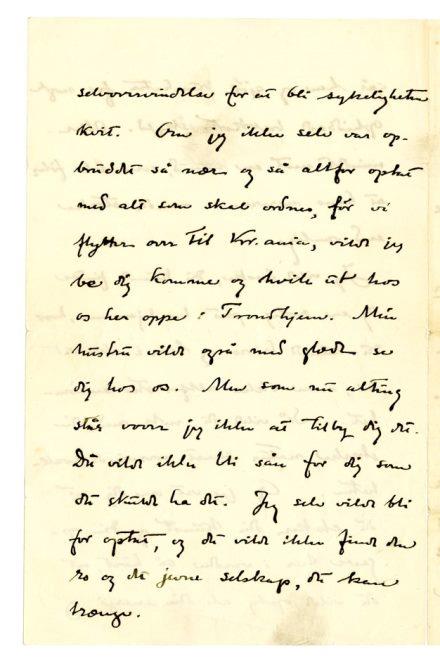 selvovervindelse for at bli sykeligheten
kvit. Om jeg ikke selv var op-
bruddet så nær og så altfor optat
med alt som skal ordnes, før vi
flytter over til Kr.ania, vilde jeg
be dig komme og hvile ut hos
os her oppe i Trondhjem. Min
hustru vilde også med glæde se
dig hos os. Men som nu alting
står vover jeg ikke at tilby dig det.
Det vilde ikke bli sån for dig som
det skulde ha det. Jeg selv vilde bli
for optat, og du vilde ikke finde den
ro og det jevne selskap, du kan
trænge.